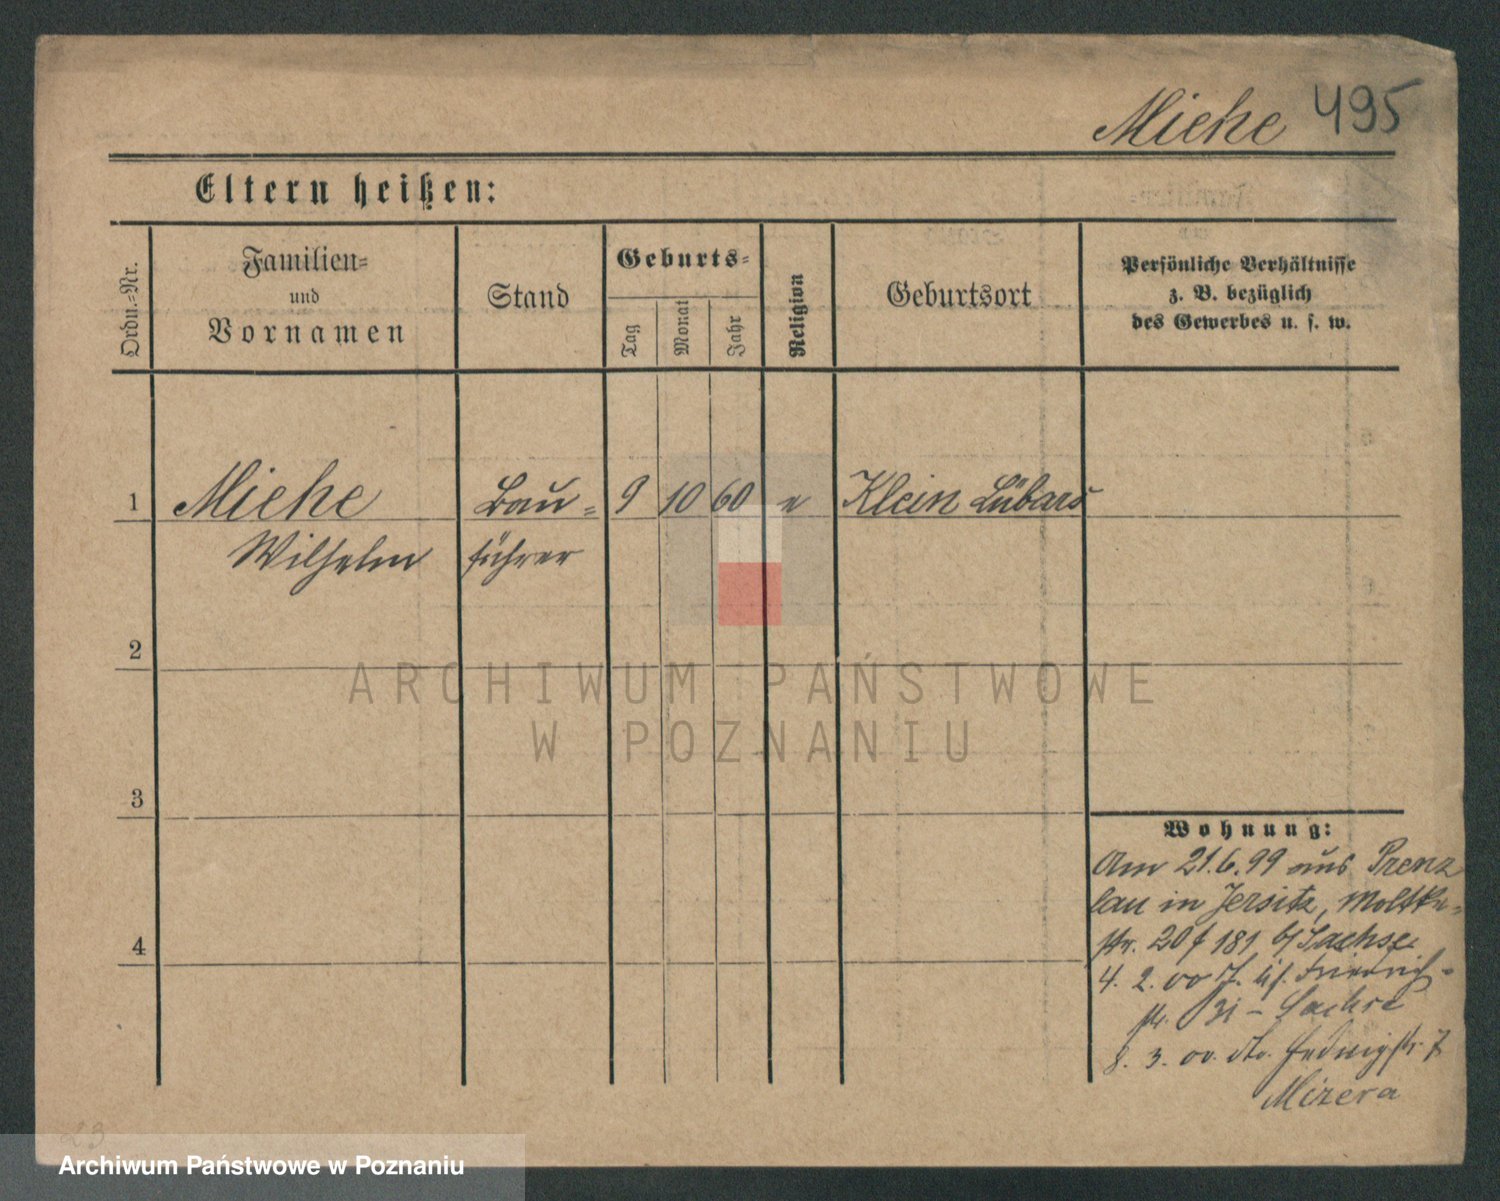 Miehe 495
Eltern heißen:
Ordn.-Nr.
Familien-
und
Vornamen
Stand
Geburts-
Tag
Monat
Jahr
Religion
Geburtsort
Persönliche Verhältnisse
z. B. bezüglich
des Gewerbes u. s. w.
1 Miehe Bau- 9 10 60 e Klein Lübars
Wilhelm führer
2
3
4
Wohnung:
Am 21.6.99 aus Prenz
lau in Jersitz, Moltke-
str. 20 f 181 b/ Sachse
4. 2. 00 J. Friedrich-
str. 31 - Sachse
8. 3. 00. dto. Hedwigstr. 7
Mizera
23
ARCHIWUM PAŃSTWOWE
W POZNANIU
Archiwum Państwowe w Poznaniu